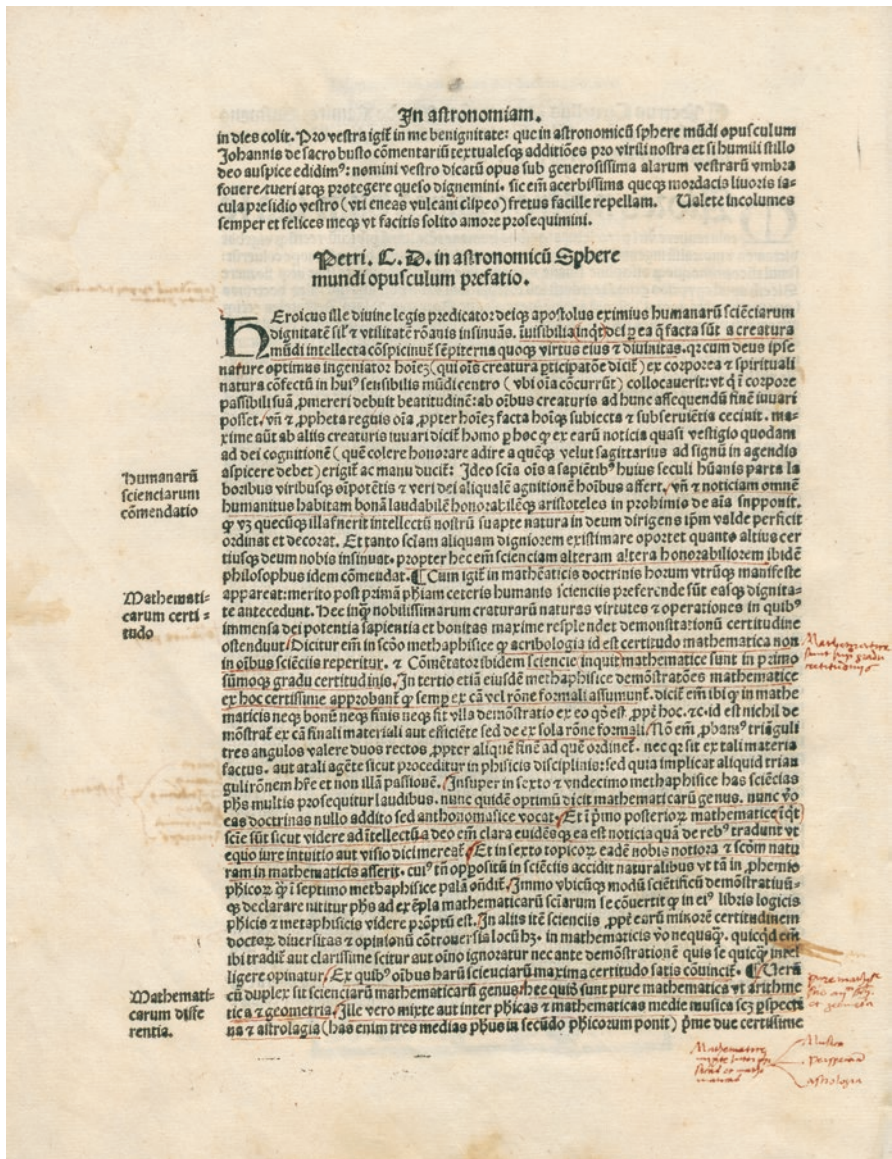 In astronomiam.
in dies colit. Pro vestra igit̃ in me benignitate: que in astronomicũ sphere mũdi opusculum
Johannis de sacro busto cõmentariũ textualesq̃ additiões pro virili nostra et si humili stillo
deo auspice edidimꝰ: nomini vestro dicatũ opus sub generosissima alarum vestrarũ vmbra
fouere/tueri atq̃ protegere queso dignemini. sic em̃ acerbissima queq̃ mordacis liuoris ia-
cula presidio vestro (vti eneas vulcani clipeo) fretus facille repellam. Ualete incolumes
semper et felices meq̃ vt facitis solito amore prosequimini.
Petri. C. D. in astronomicũ Sphere
mundi opusculum prefatio.
HEroicus ille diuine legis predicator: deiq̃ apostolus eximius humanarũ sciẽciarum
dignitatẽ sił ⁊ vtilitatẽ rõanis insinuãs. ĩuisibilia inq̃t dei ꝑ ea q̃ facta sũt a creatura
mũdi intellecta cõspiciunt̃ sẽpiterna quoq̃ virtus eius ⁊ diuinitas. qꝛ cum deus ipse
nature optimus ingeniator hoĩeꝫ (qui oĩs creatura ꝑticipatõe dicit̃) ex corporea ⁊ spirituali
natura cõfectũ in huiꝰ sensibilis mũdi centro (vbi oĩa cõcurrũt) collocauerit: vt q̃ ĩ corpore
passibili suã ꝓmereri debuit beatitudinẽ: ab oĩbus creaturis ad hunc assequendũ finẽ iuuari
posset. vñ ⁊ ꝓpheta regius oĩa ꝓpter hoĩeꝫ facta hoĩq̃ subiecta ⁊ subseruiẽtia cecinit. ma-
xime aũt ab aliis creaturis iuuari dicit̃ homo ꝑ hoc ꝙ ex earũ noticia quasi vestigio quodam
ad dei cognitionẽ (quẽ colere honorare adire a quẽqꝫ velut sagittarius ad signũ in agendis
aspicere debet) erigit̃ ac manu ducit̃: Ideo scĩa oĩs a sapiẽtibꝰ huius seculi hũanis parta la
boribus viribusq̃ oĩpotẽtis ⁊ veri dei aliqualẽ agnitionẽ hoĩbus affert. vñ ⁊ noticiam omnẽ
humanitus habitam bonã laudabilẽ honorabilẽq̃ aristoteles in prohimio de aĩa supponit.
ꝙ vꝫ quecũq̃ illa fuerit intellectũ nostrũ suapte natura in deum dirigens ip̃m valde perficit
ordinat et decorat. Et tanto sciam aliquam digniorem existimare oportet quanto altius cer
tiusq̃ deum nobis insinuat. propter hec em̃ scienciam alteram altera honorabiliorem ibidẽ
philosophus idem cõmendat. ¶ Cum igit̃ in mathẽaticis doctrinis horum vtrũq̃ manifeste
appareat: merito post primã phĩam ceteris humanis scienciis preferende sũt easq̃ dignita-
te antecedunt. Hee inq̃ nobilissimarum creaturarũ naturas virtutes ⁊ operationes in quibꝰ
immensa dei potentia sapientia et bonitas maxime resplendet demonstrationũ certitudine
ostendunt Dicitur em̃ in scõo methaphisice ꝙ acribologia id est certitudo mathematica non
in oĩbus sciẽciis reperitur. ⁊ Cõmẽtatoꝛ ibidem sciencie inquit mathematice sunt in primo
sũmoq̃ gradu certitudinis. In tertio etiã eiusdẽ methaphisice demonstratões mathematice
ex hoc certissime approbant̃ ꝙ semꝑ ex cã vel rõne formali assumunt̃. dicit̃ em̃ ibi ꝙ in mathe
maticis neq̃ bonũ neq̃ finis neq̃ fit vlla demõstratio ex eo qõ est ꝓpt̃ hoc. ⁊c. id est nichil de
mõstrat̃ ex cã finali materiali aut efficiẽte sed de ex sola rõne formali. Nõ em̃ ꝓbamꝰ triãguli
tres angulos valere duos rectos ꝓpter aliquẽ finẽ ad quẽ ordinet̃. nec qꝛ sit ex tali materia
factus. aut a tali agẽte sicut proceditur in phisicis disciplinis: sed quia implicat aliquid trian
guli rõnem hr̃e et non illã passionẽ. Insuper in sexto ⁊ vndecimo methaphisice has sciẽcias
phs̃ multis prosequitur laudibus. nunc quidẽ optimũ dicit mathematicarũ genus. nunc ṽo
eas doctrinas nullo addito sed anthonomasice vocat. Et ĩ p̃mo posterioꝝ mathematice ĩq̃t
scĩe sũt sicut videre ad ĩtellectũ a deo em̃ clara euidẽsq̃ ea est noticia quã de rebꝰ tradunt vt
equo iure intuitio aut visio dici mereat̃. Et in sexto topicoꝝ eadẽ nobis notiora ⁊ scõm natu
ram in mathematicis asserit. cuiꝰ tñ oppositũ in sciẽciis accidit naturalibus vt tã in ꝓhemio
phicoꝝ ꝙ̃ ĩ septimo methaphisice palã oñdit̃. Immo vbicũq̃ modũ sciẽtificũ demõstratiuũ-
q̃ declarare nititur phs̃ ad exẽpla mathematicarũ sciarum se cõuertit ꝙ in eiꝰ libris logicis
phicis ⁊ metaphisicis videre prõptũ est. In aliis itẽ scienciis ꝓpt̃ earũ minorẽ certitudinem
doctoꝝ diuersitas ⁊ opinionũ cõtrouersia locũ hꝫ. in mathematicis ṽo nequaq̃. quicq̃d em̃
ibi tradit̃ aut clarissime scitur aut oĩno ignoratur nec ante demõstrationẽ quis se quicq̃ intel
ligere opinatur. Ex quibꝰ oĩbus harũ scienciarũ maxima certitudo satis cõuincit̃. ¶ Uerũ
cũ duplex sit scienciarũ mathematicarũ genus: hee quidẽ sunt pure mathematice vt arithme
tica ⁊ geometria. Ille vero mixte aut inter phicas ⁊ mathematicas medie musica scꝫ ꝑspecti
ua ⁊ astrologia (has enim tres medias phs̃ in secũdo phicorum ponit) p̃me due certissime
Humanarũ
scienciarum
cõmendatio
Mathemati-
carum certi-
tudo
Mathemati-
carum diffe
rentia.
Mathematice
sunt in primo gradu
certitudinis
pure mathe
et geometria
Mathematice
mixte
Musica
Perspectiua
astrologia